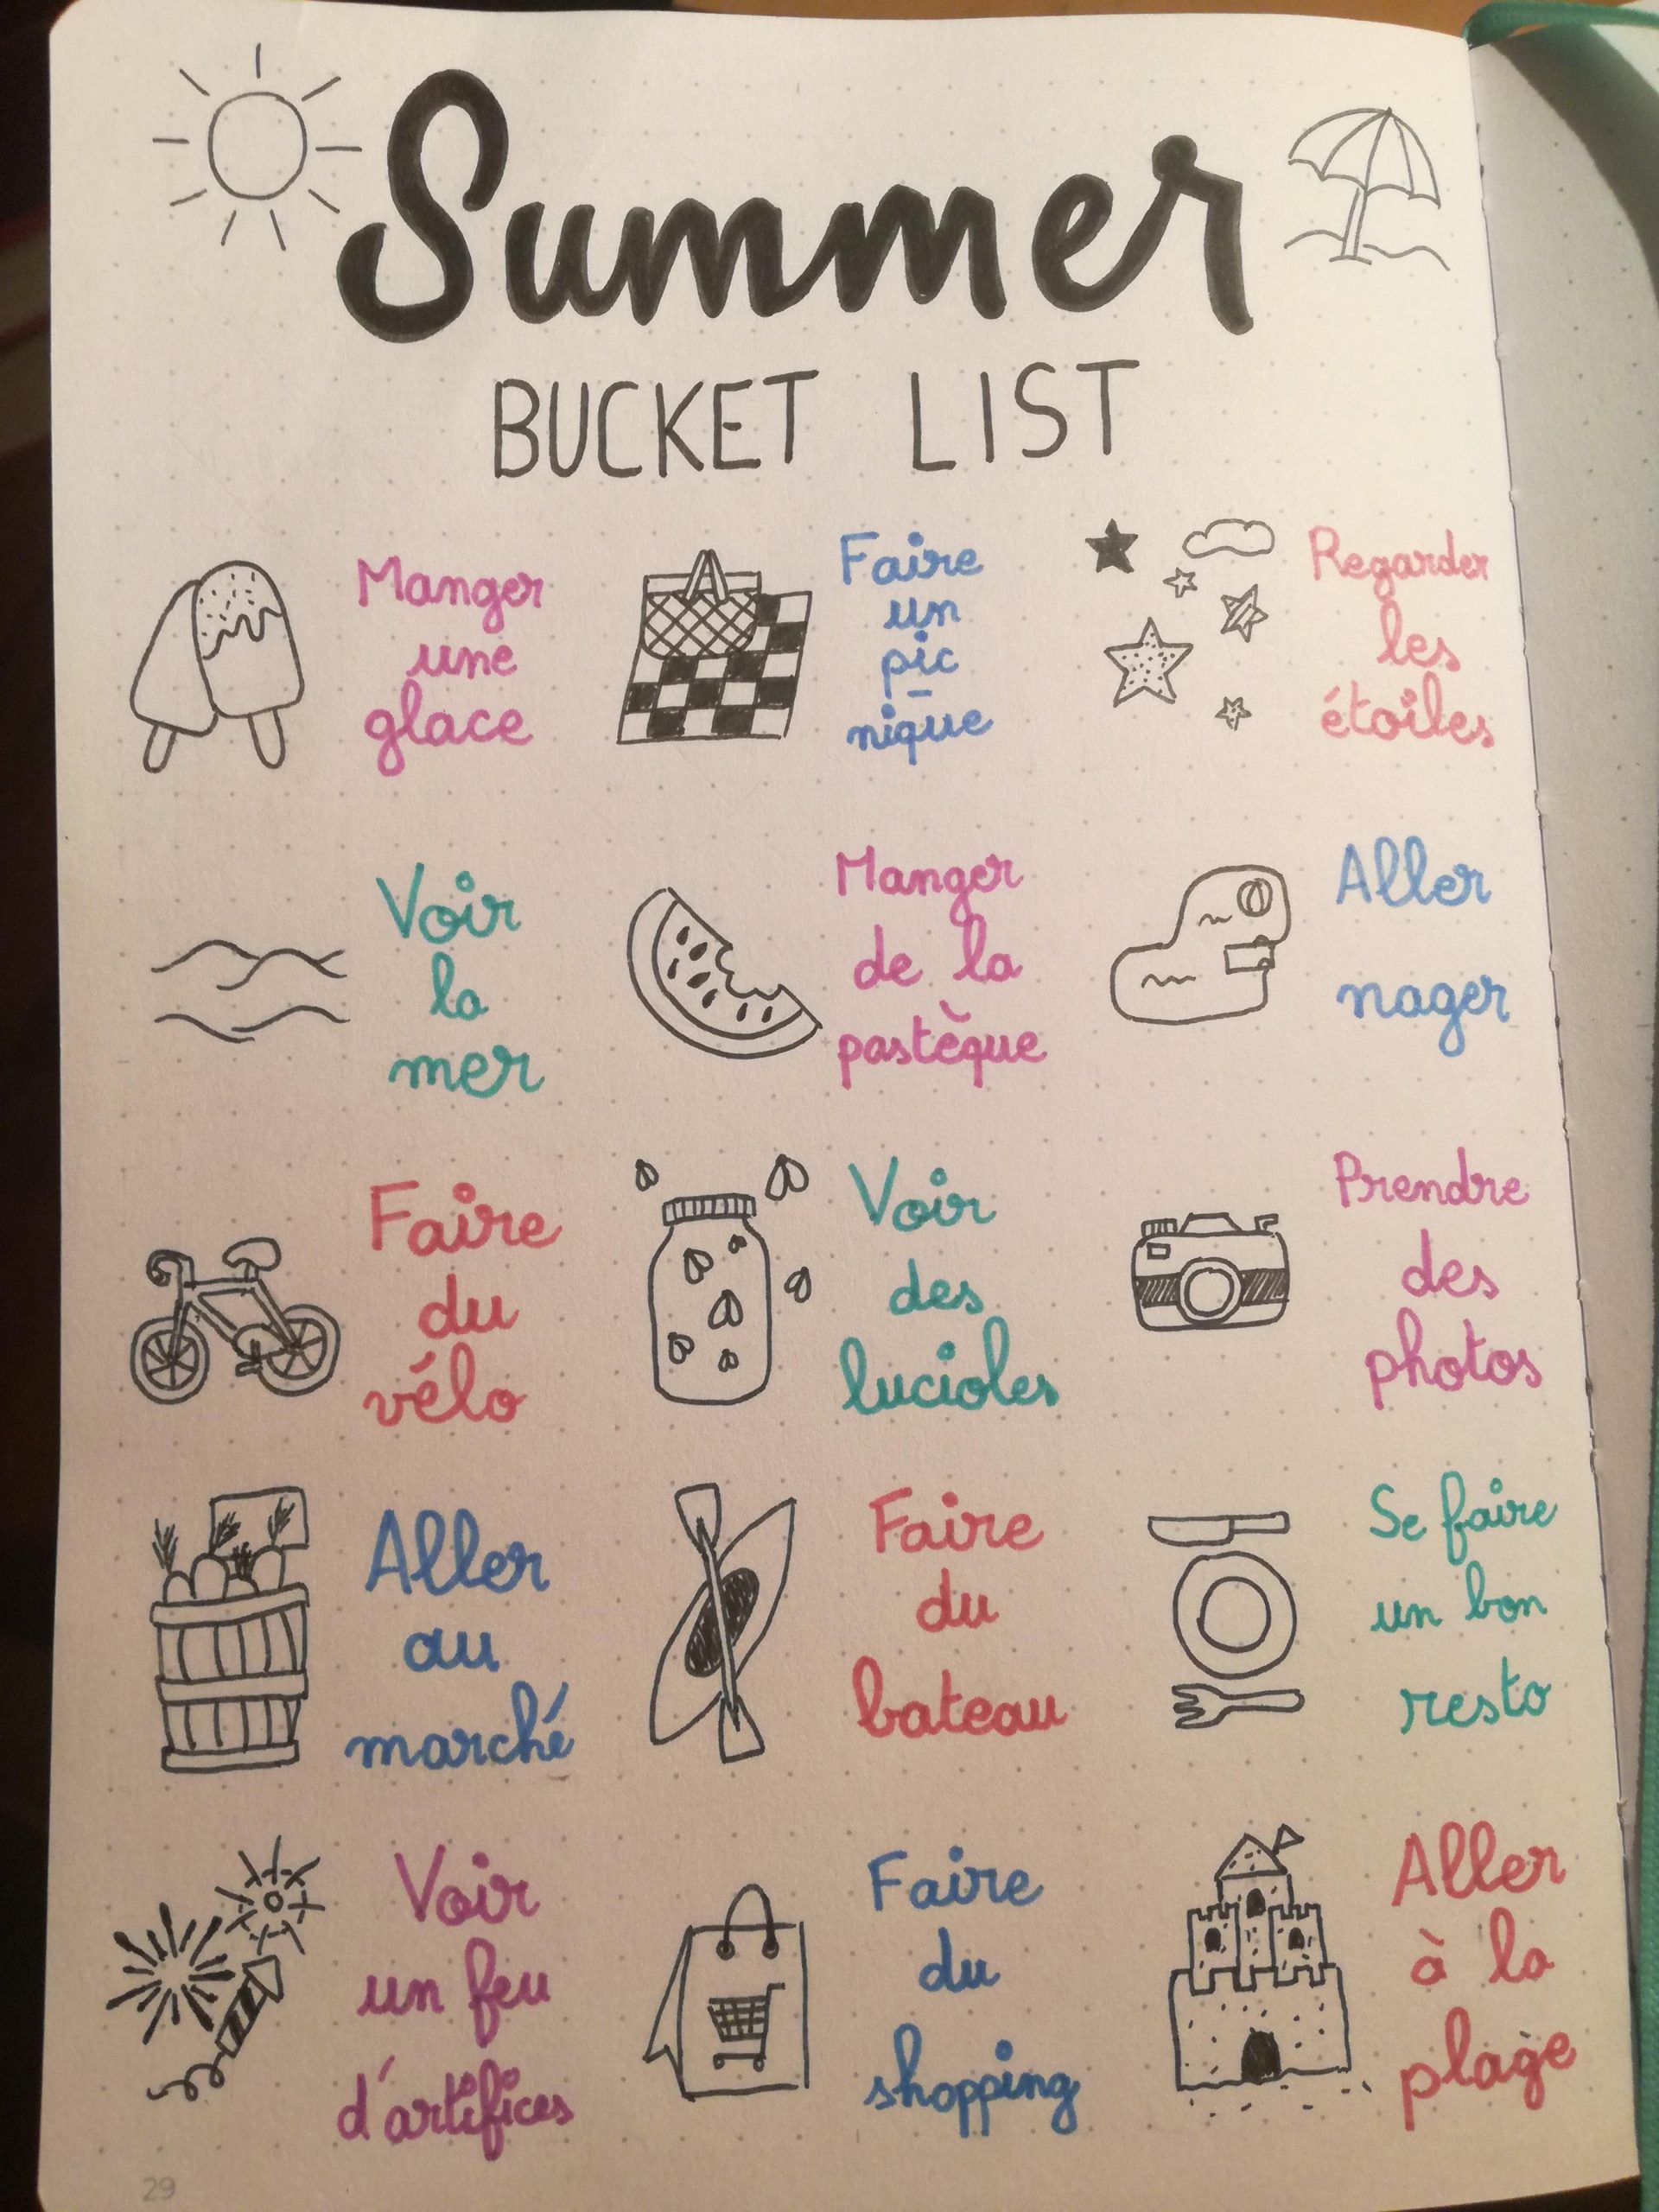 Summer
BUCKET LIST
Manger
une
glace
Faire
un
pic
-
nique
Regarder
les
étoiles
Voir
la
mer
Manger
de la
pastèque
Aller
nager
Faire
du
vélo
Voir
des
lucioles
Prendre
des
photos
Aller
au
marché
Faire
du
bateau
Se faire
un bon
resto
Voir
un feu
d'artifices
Faire
du
shopping
Aller
à la
plage
29